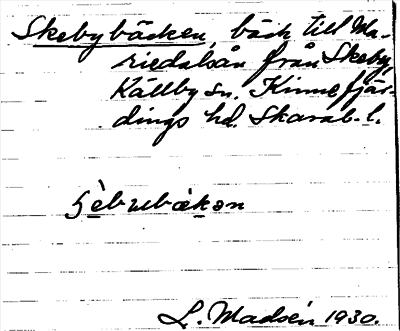 Skebybäcken, bäck till Ma-
riedalsån från Skeby,
Källby sn. Kinnefjär-
dings hd. Skarab. l.
L. Madsén 1930.